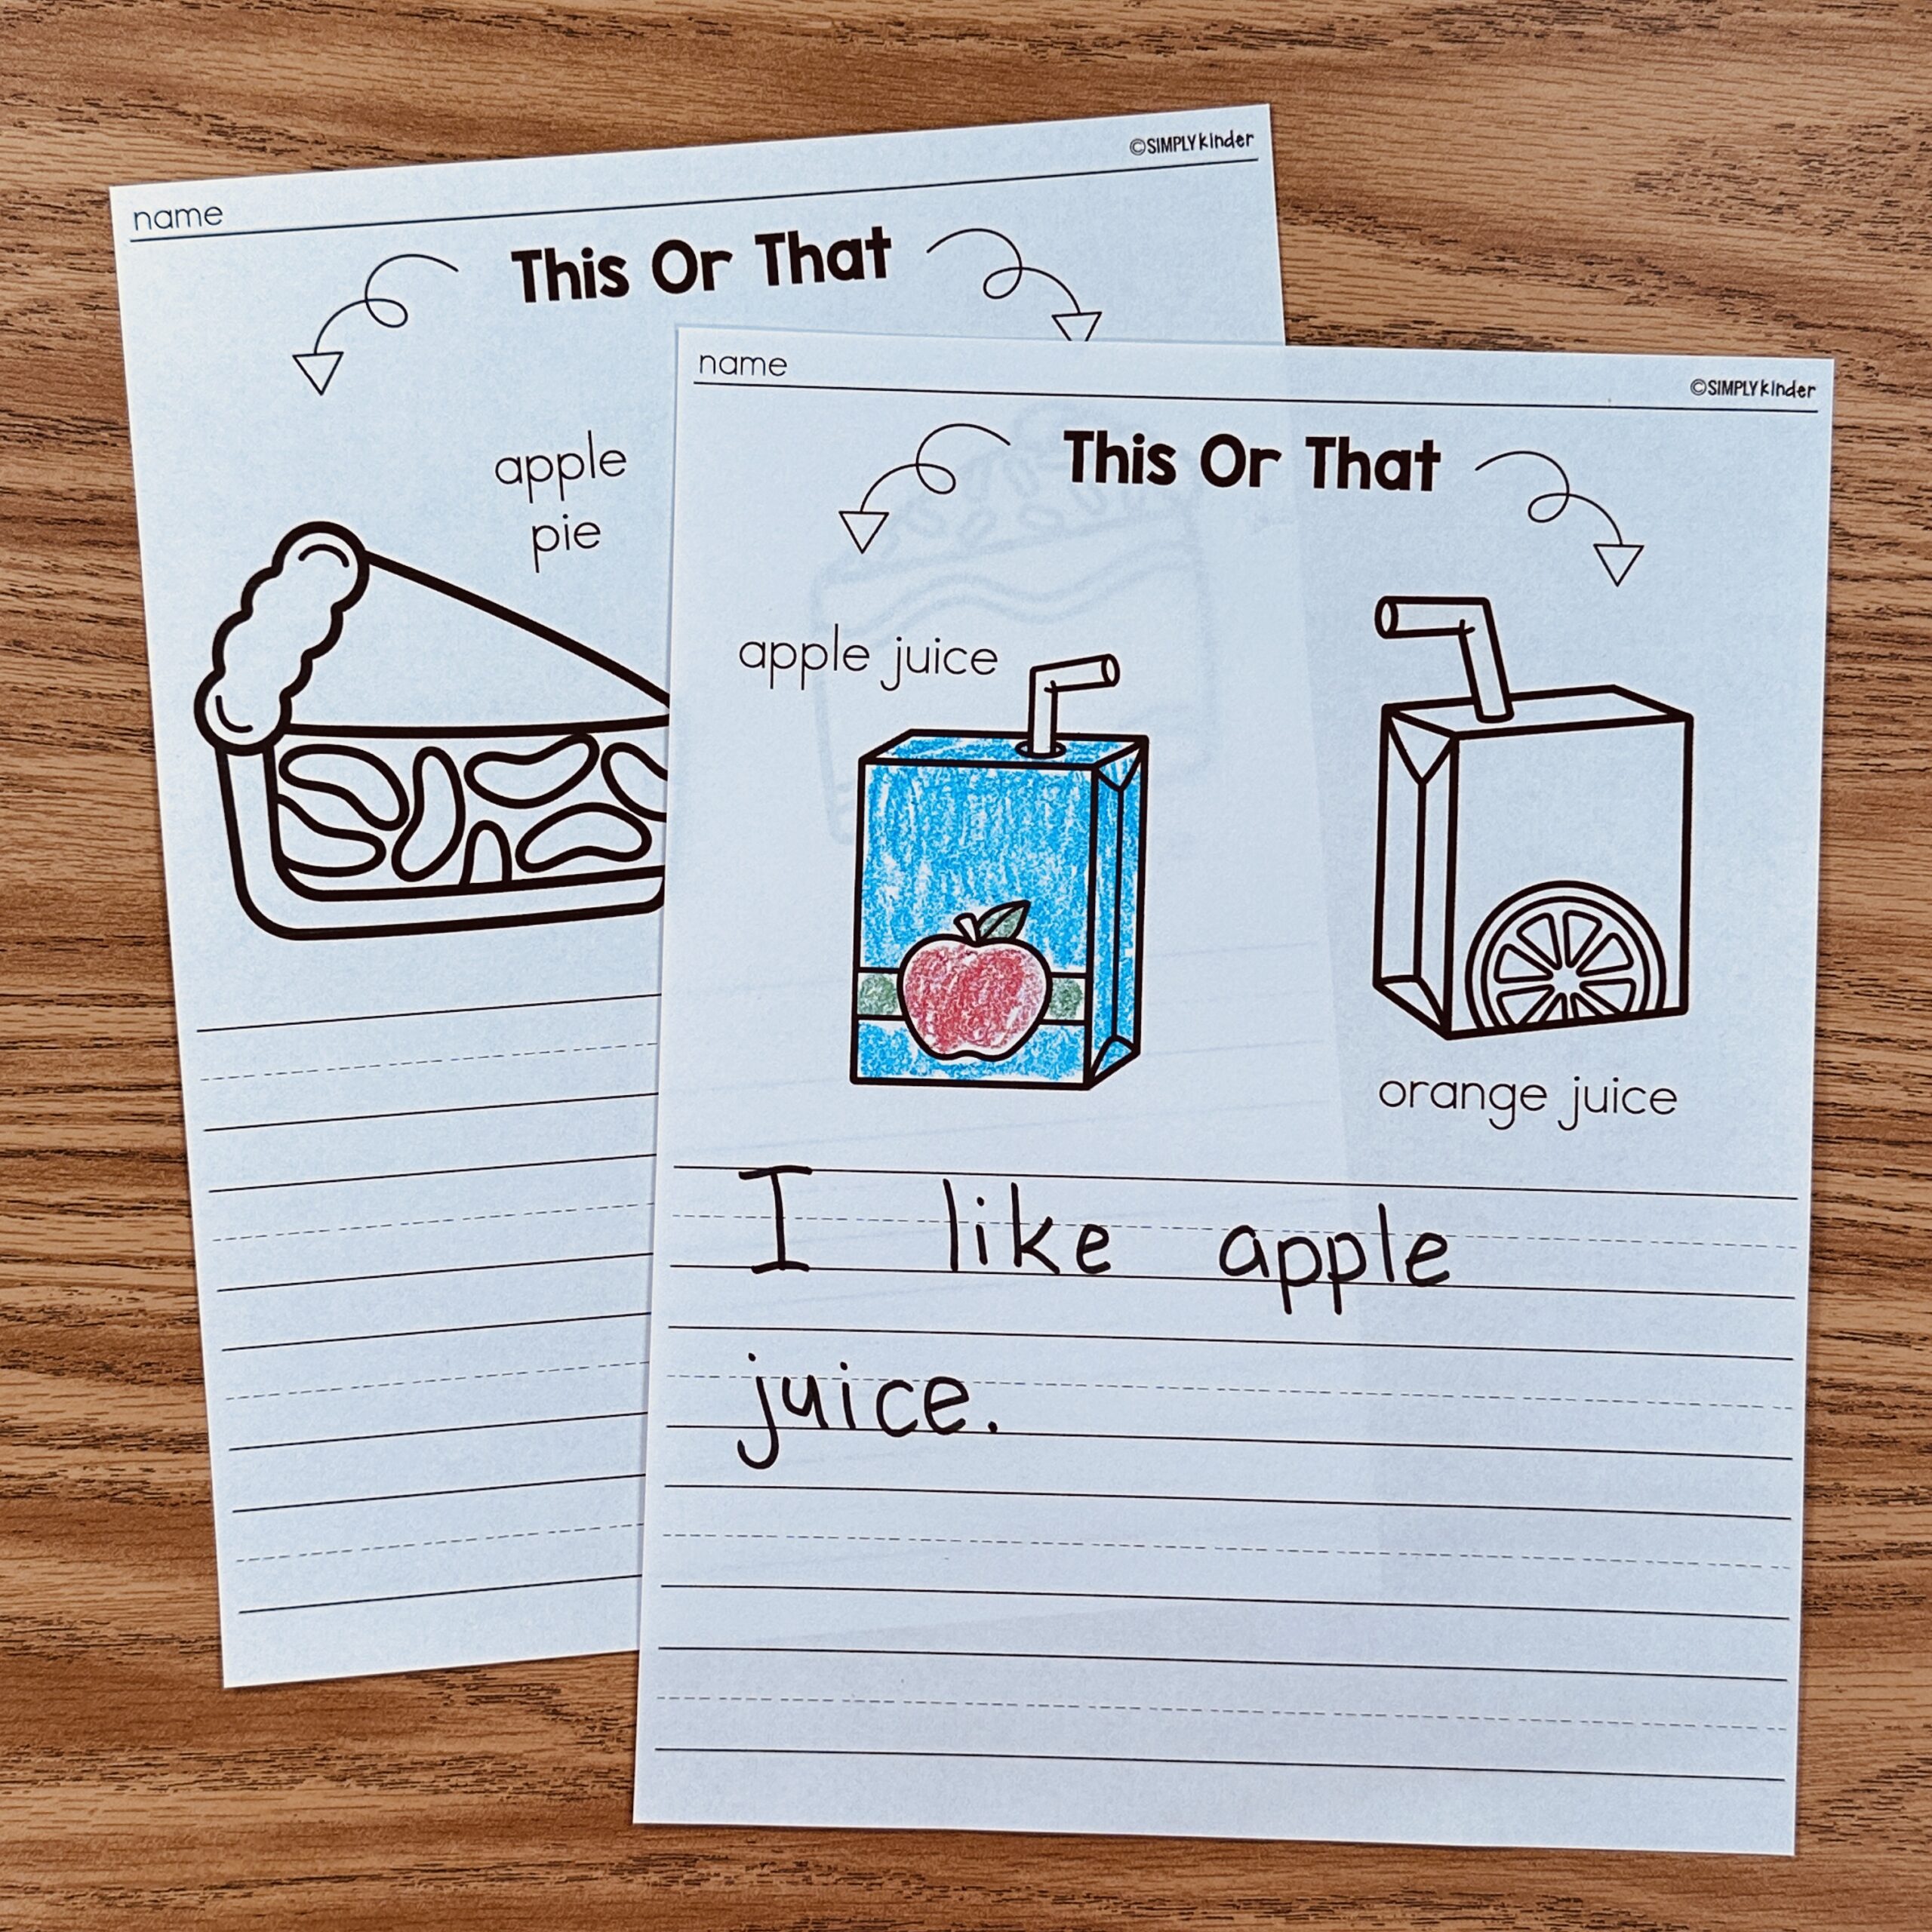 name
©SIMPLYkinder
This Or That
apple
pie
name
©SIMPLYkinder
This Or That
apple juice
orange juice
I like apple
juice.